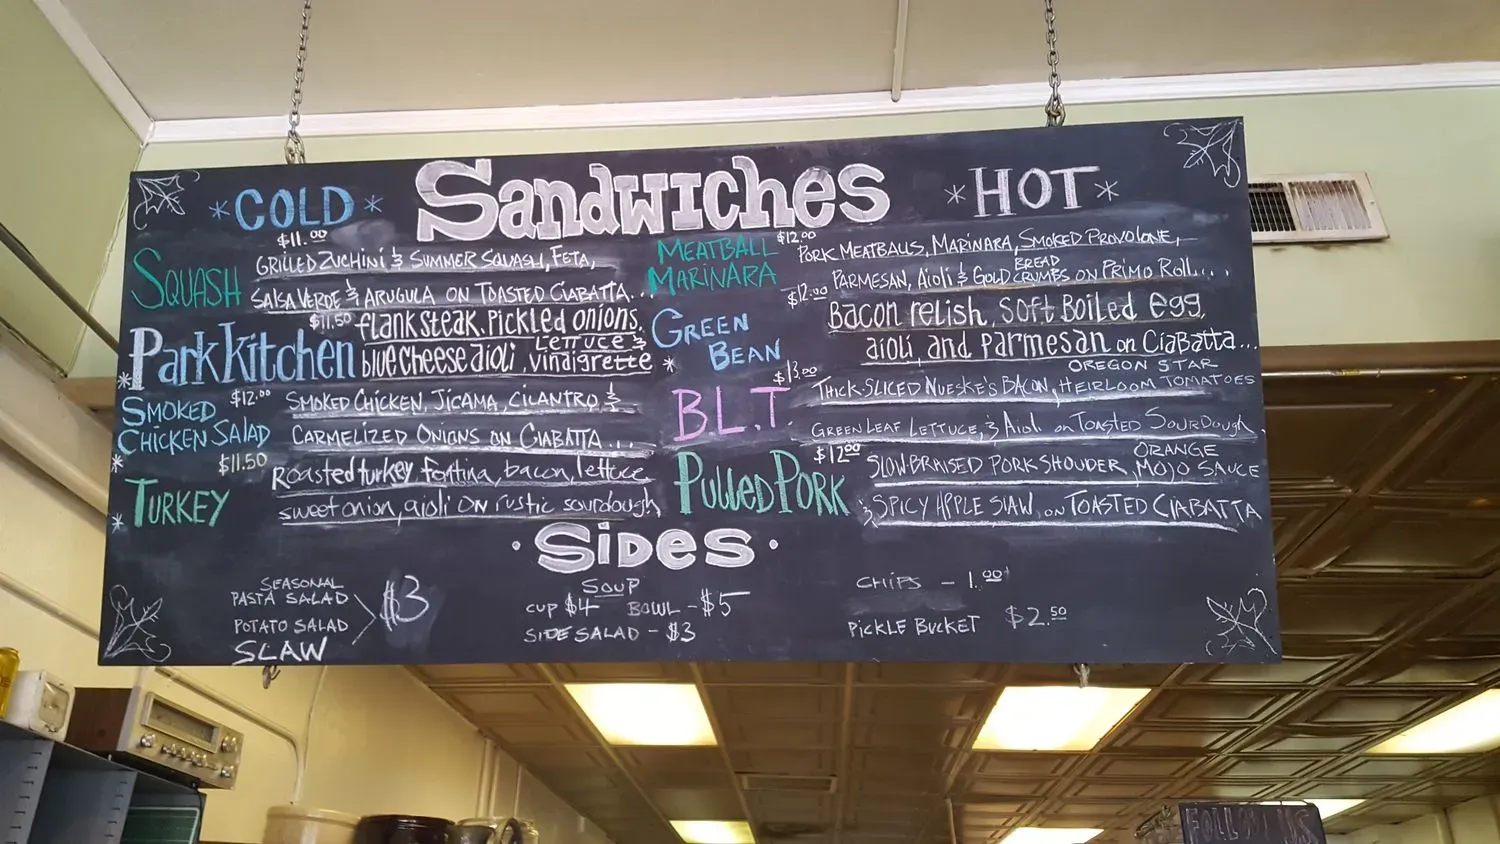 Sandwiches
* COLD *
$11.00
SQUASH
GRILLED ZUCHINI & SUMMER SQUASH, FETA,
SALSA VERDE & ARUGULA ON TOASTED CIABATTA...
$11.50
* Park Kitchen
flank steak, Pickled onions,
LETTUCE &
blue cheese aioli, vinaigrette
$12.00
* SMOKED
CHICKEN SALAD
SMOKED CHICKEN, JICAMA, CILANTRO, &
CARMELIZED ONIONS ON CIABATTA...
$11.50
* TURKEY
Roasted turkey fontina, bacon, lettuce
sweet onion, aioli ON rustic sourdough
* HOT *
$12.00
MEATBALL
MARINARA
PORK MEATBALLS, MARINARA, SMOKED PROVOLONE,
BREAD
PARMESAN, AIOLI & GOLD CRUMBS ON PRIMO ROLL....
$12.00
GREEN
* BEAN
Bacon relish, soft Boiled egg,
aioli, and Parmesan on Ciabatta...
$13.00
B.L.T.
OREGON STAR
THICK-SLICED NUESKE'S BACON, HEIRLOOM TOMATOES
GREEN LEAF LETTUCE, & AIOLI ON TOASTED SOURDOUGH.
$12.00
PULLED PORK
ORANGE
SLOW BRAISED PORK SHOUDER, MOJO SAUCE
& SPICY APPLE SLAW, ON TOASTED CIABATTA
· Sides ·
SEASONAL
PASTA SALAD
POTATO SALAD
SLAW
$3
SOUP
CUP $4 BOWL - $5
SIDE SALAD - $3
CHIPS - 1.00
PICKLE BUCKET $2.50
FOLLOW US